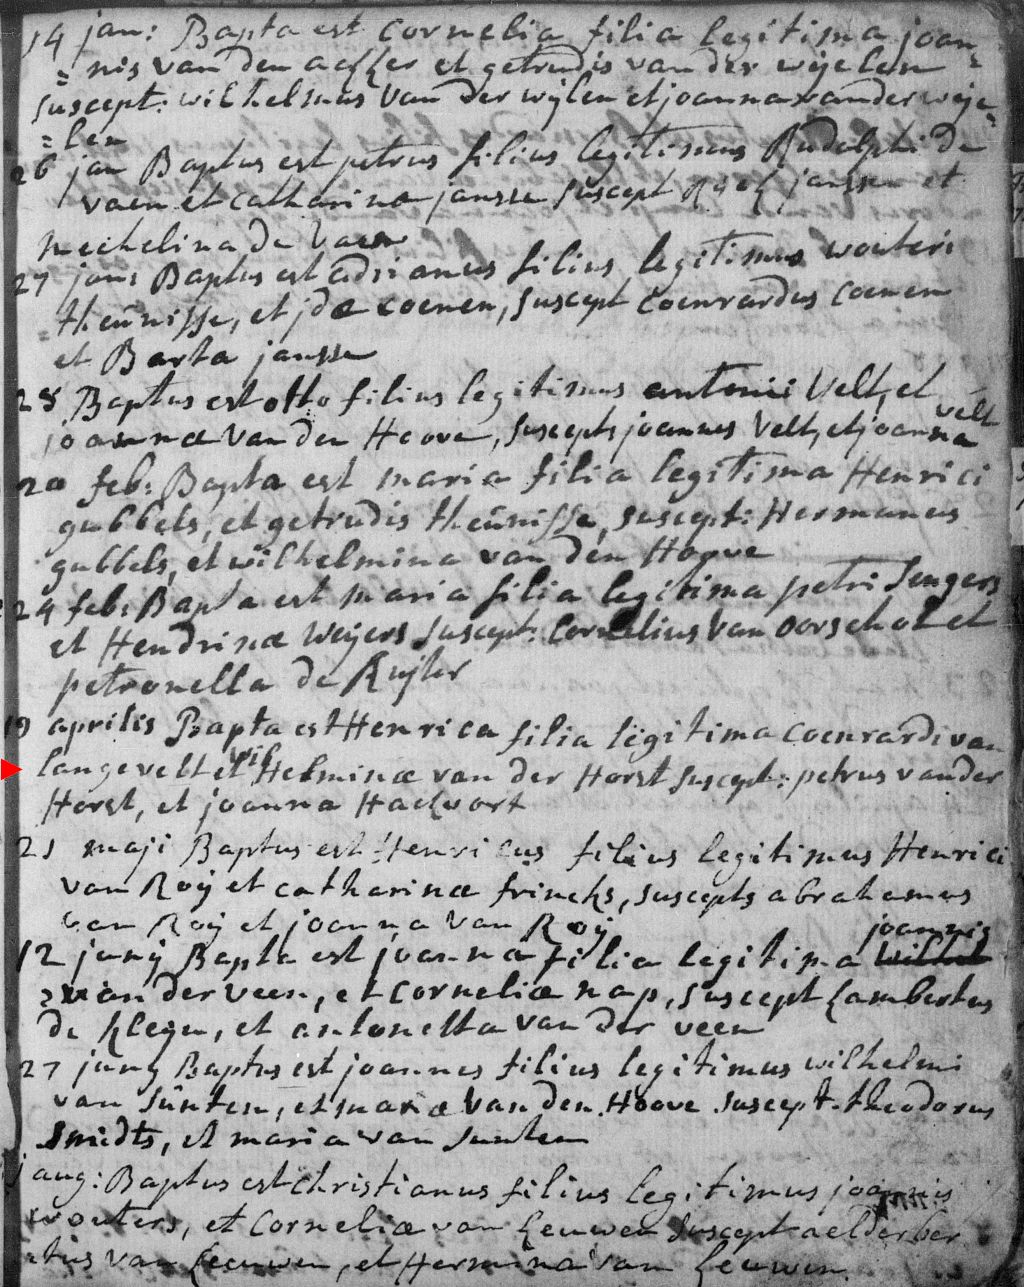 14 jan: Bapta est cornelia filia legitima joan=
=nis van den acker et getrudis van der wijelen
suscept: wilhelmus van der wylen et joanna vander weye=
=len
26 jan Baptus est petrus filius legitimus Rudolphi de
vaen et catharina jansse suscept jansen et
Mechelina de vaen
27 jan: Baptus est adrianus filius legitimus wouteri
theunisse, et jdæ coenen, suscept coenrardus coenen
et Barta jansse
28 Baptus est otto filius legitimus antonii Velt, et
joannæ van den Hoove, suscepts joannes Velt, et joanna velt
20 feb: Bapta est maria filia legitima Henrici
gubbels, et getrudis theunisse, suscept: Hermanus
gubbels, et wilhelmina van den Hoove
24 feb: Bapta est maria filia legitima petri Sengers
et Hendrinæ Weijers suscept: Cornelius van oorschot et
petronella de Ruyter
19 aprilis Bapta est Henrica filia legitima coenrardi van
langevelt et wilhelminæ van der Horst suscept: petrus vander
Horst, et joanna Hadvort
21 maji Baptus est Henricus filius legitimus Henrici
van Roÿ et catharinæ frincks, suscepts abrahamus
van Roÿ et joanna van Roÿ
12 junÿ Bapta est joanna filia legitima joannis
van der veen, et corneliæ nap, suscept Lambertus
de kleyn, et antonetta van der veen
27 junÿ Baptus est joannes filius legitimus wilhelmi
van sûnten, et mariæ van den Hoove suscept. theodorus
Smidts, et maria van sunten
aug: Baptus est Christianus filius legitimus joannis
wouters, et Corneliæ van Leuwen suscept aelderber
tus van Leeuwen, et Hermina van Leuwen